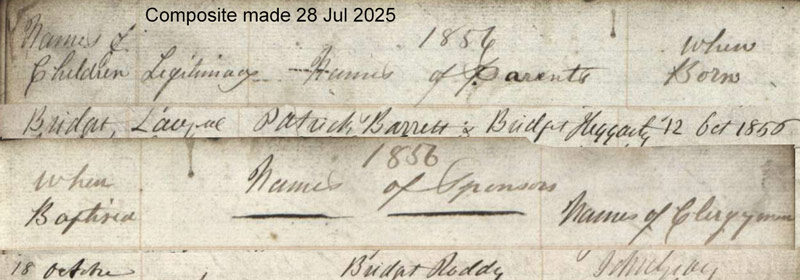 Composite made 28 Jul 2025
Names of 1856 when
Children Legitimacy Names of Parents Born
Bridget, Patrick Barrett & Bridget Heggarty 12 Oct 1856
1856
when Names of Sponsors
Baptised Names of Clergymen
18 Bridget Roddy